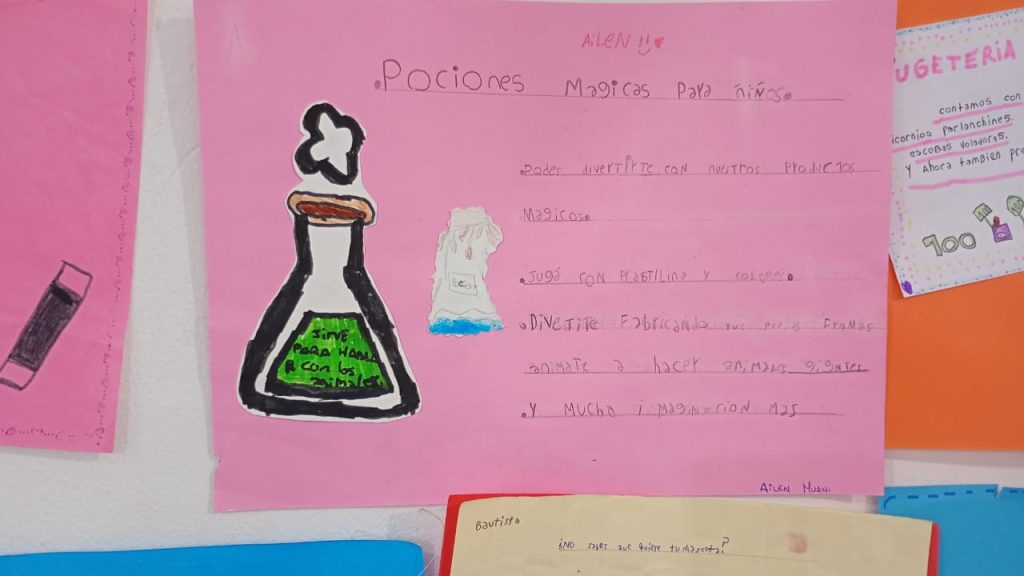 AiLEN !!
.Pociones Magicas Para niños.
.Podes divertirte con nuestros Productos
Magicos.
.Jugá con Plastilina y colores.
.Divetite Fabricando
animate a hacer animales
.Y Mucha imaginacion mas
SIRVE
PARA HABLA
R con los
animales
AiLEN
UGETERIA
contamos con
icornios Parlanchines.
escobas voladoras.
Y Ahora tambien Pre
100
Bautista
¿No sabes que quiere tu mascota?